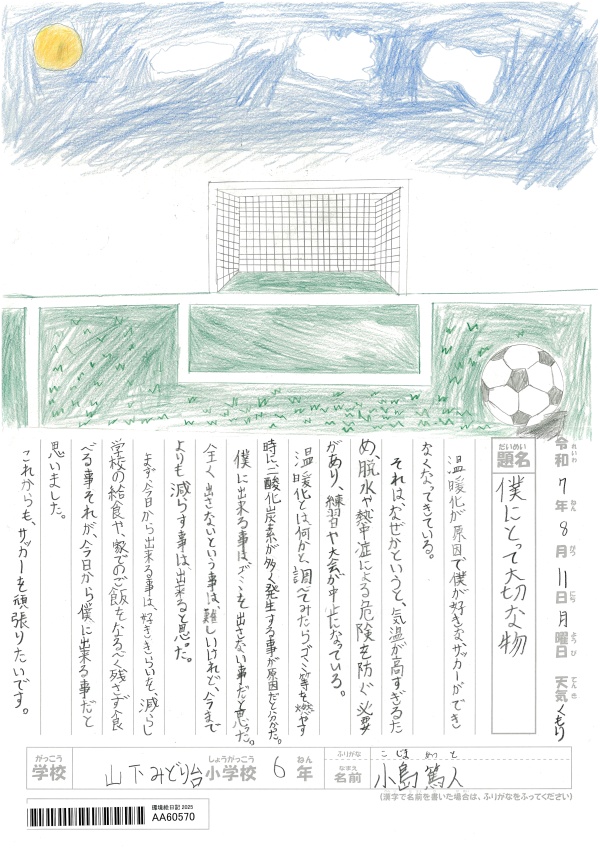 令和7年8月11日月曜日 天気くもり
れいわ ねん がつ にち ようび てんき
だいめい
題名 僕にとって大切な物
温暖化が原因で僕が好きな、サッカーができ
なくなってきている。
それはなぜかというと、気温が高すぎるた
め、脱水や熱中症による危険を防ぐ必要
があり、練習や大会が中止になっている。
温暖化とは何かと、調べてみたらゴミ等を燃やす
時に二酸化炭素が多く発生する事が原因だと分かった。
僕に出来る事は、ゴミを出さない事だと思った。
全く出さないという事は、難しいけれど、今まで
よりも減らす事は出来ると思った。
まず、今日から出来る事は、好ききらいを、減らし
学校の給食や、家でのご飯をなるべく残さず食
べる事それが、今日から僕に出来る事だと
思いました。
これからも、サッカーを頑張りたいです。
がっこう しょうがっこう ねん
学校 山下みどり台小学校 6年
ふりがな こじま あつと
なまえ
名前 小島篤人
(漢字で名前を書いた場合は、ふりがなをふってください)
環境絵日記 2025
AA60570